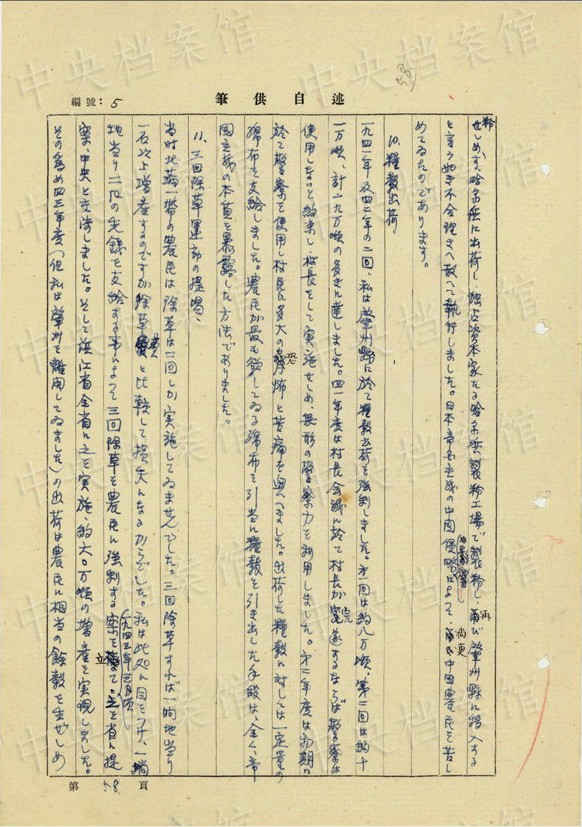 述自供筆
編號：5
せしめず、哈尔浜に出荷し、独占資本家たる哈尔浜製粉工場で製粉し、再び肇州縣に搬入する
と言う如き不合理さへ敢へて執行しました。日本帝国主義の中国侵略によって、尚更中国農民を苦し
めてゐたのであります。
10. 糧穀出荷
一九四一年及四二年の二回、私は肇州縣に於て糧穀出荷を強制しました。第一回は約八万噸、第二回は約十
一万噸、計一九万噸の多きに達しました。四一年度は村長会議に於て村長が完遂するならば警察は
使用しないと約束し、村長をして実施せしめ、無形の警察力を利用しました。第二年度は初期
於て警察を使用し村民に多大の恐怖と苦痛を與へました。出荷した糧穀に対しては一定量の
綿布を支給しました。農民が最も欲してゐる綿布を引当に糧穀を引き出した手段は、全く、帝
国主義の本質を暴露した方法でありました。
11. 三回除草運動の提唱、
当時北満一帯の農民は除草は二回しか実施してゐませんでした。三回除草すれば一晌地当り
一石以上増産するのですが除草費と比較して損失になるからでした。私は此処に目をつけ、一晌
地当り二段の毛録を支給する事によって三回除草を農民に強制する案を立て之を省に提
一九四三年三月頃
案、中央と交渉しました。そして浜江省全省に之を実施、約六〇万噸の増産を実現しました。
その為め四三年度（但私は肇州を離開してゐました）の出荷は農民に相当の餘穀を生ぜしめ
第 58 頁
中央档案馆